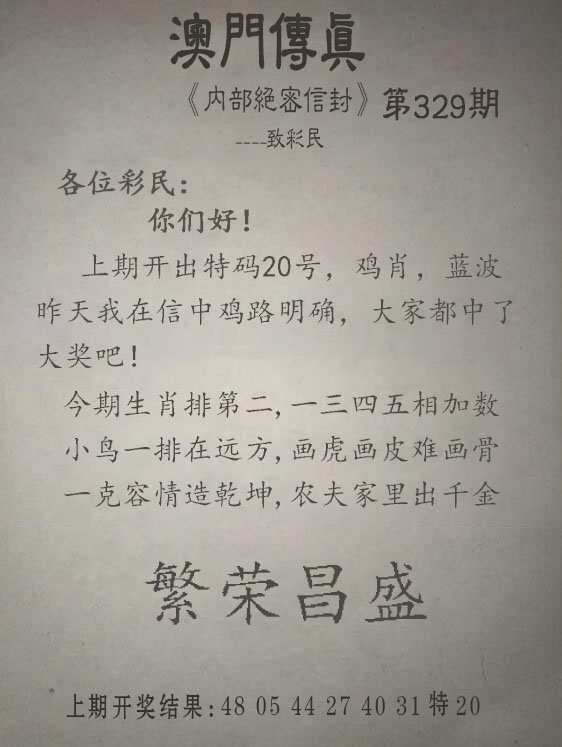 澳門傳眞
《内部絕密信封》第329期
----致彩民
各位彩民:
你们好!
上期开出特码20号，鸡肖，蓝波
昨天我在信中鸡路明确，大家都中了
大奖吧!
今期生肖排第二,一三四五相加数
小鸟一排在远方,画虎画皮难画骨
一克容情造乾坤,农夫家里出千金
繁荣昌盛
上期开奖结果:48 05 44 27 40 31 特 20